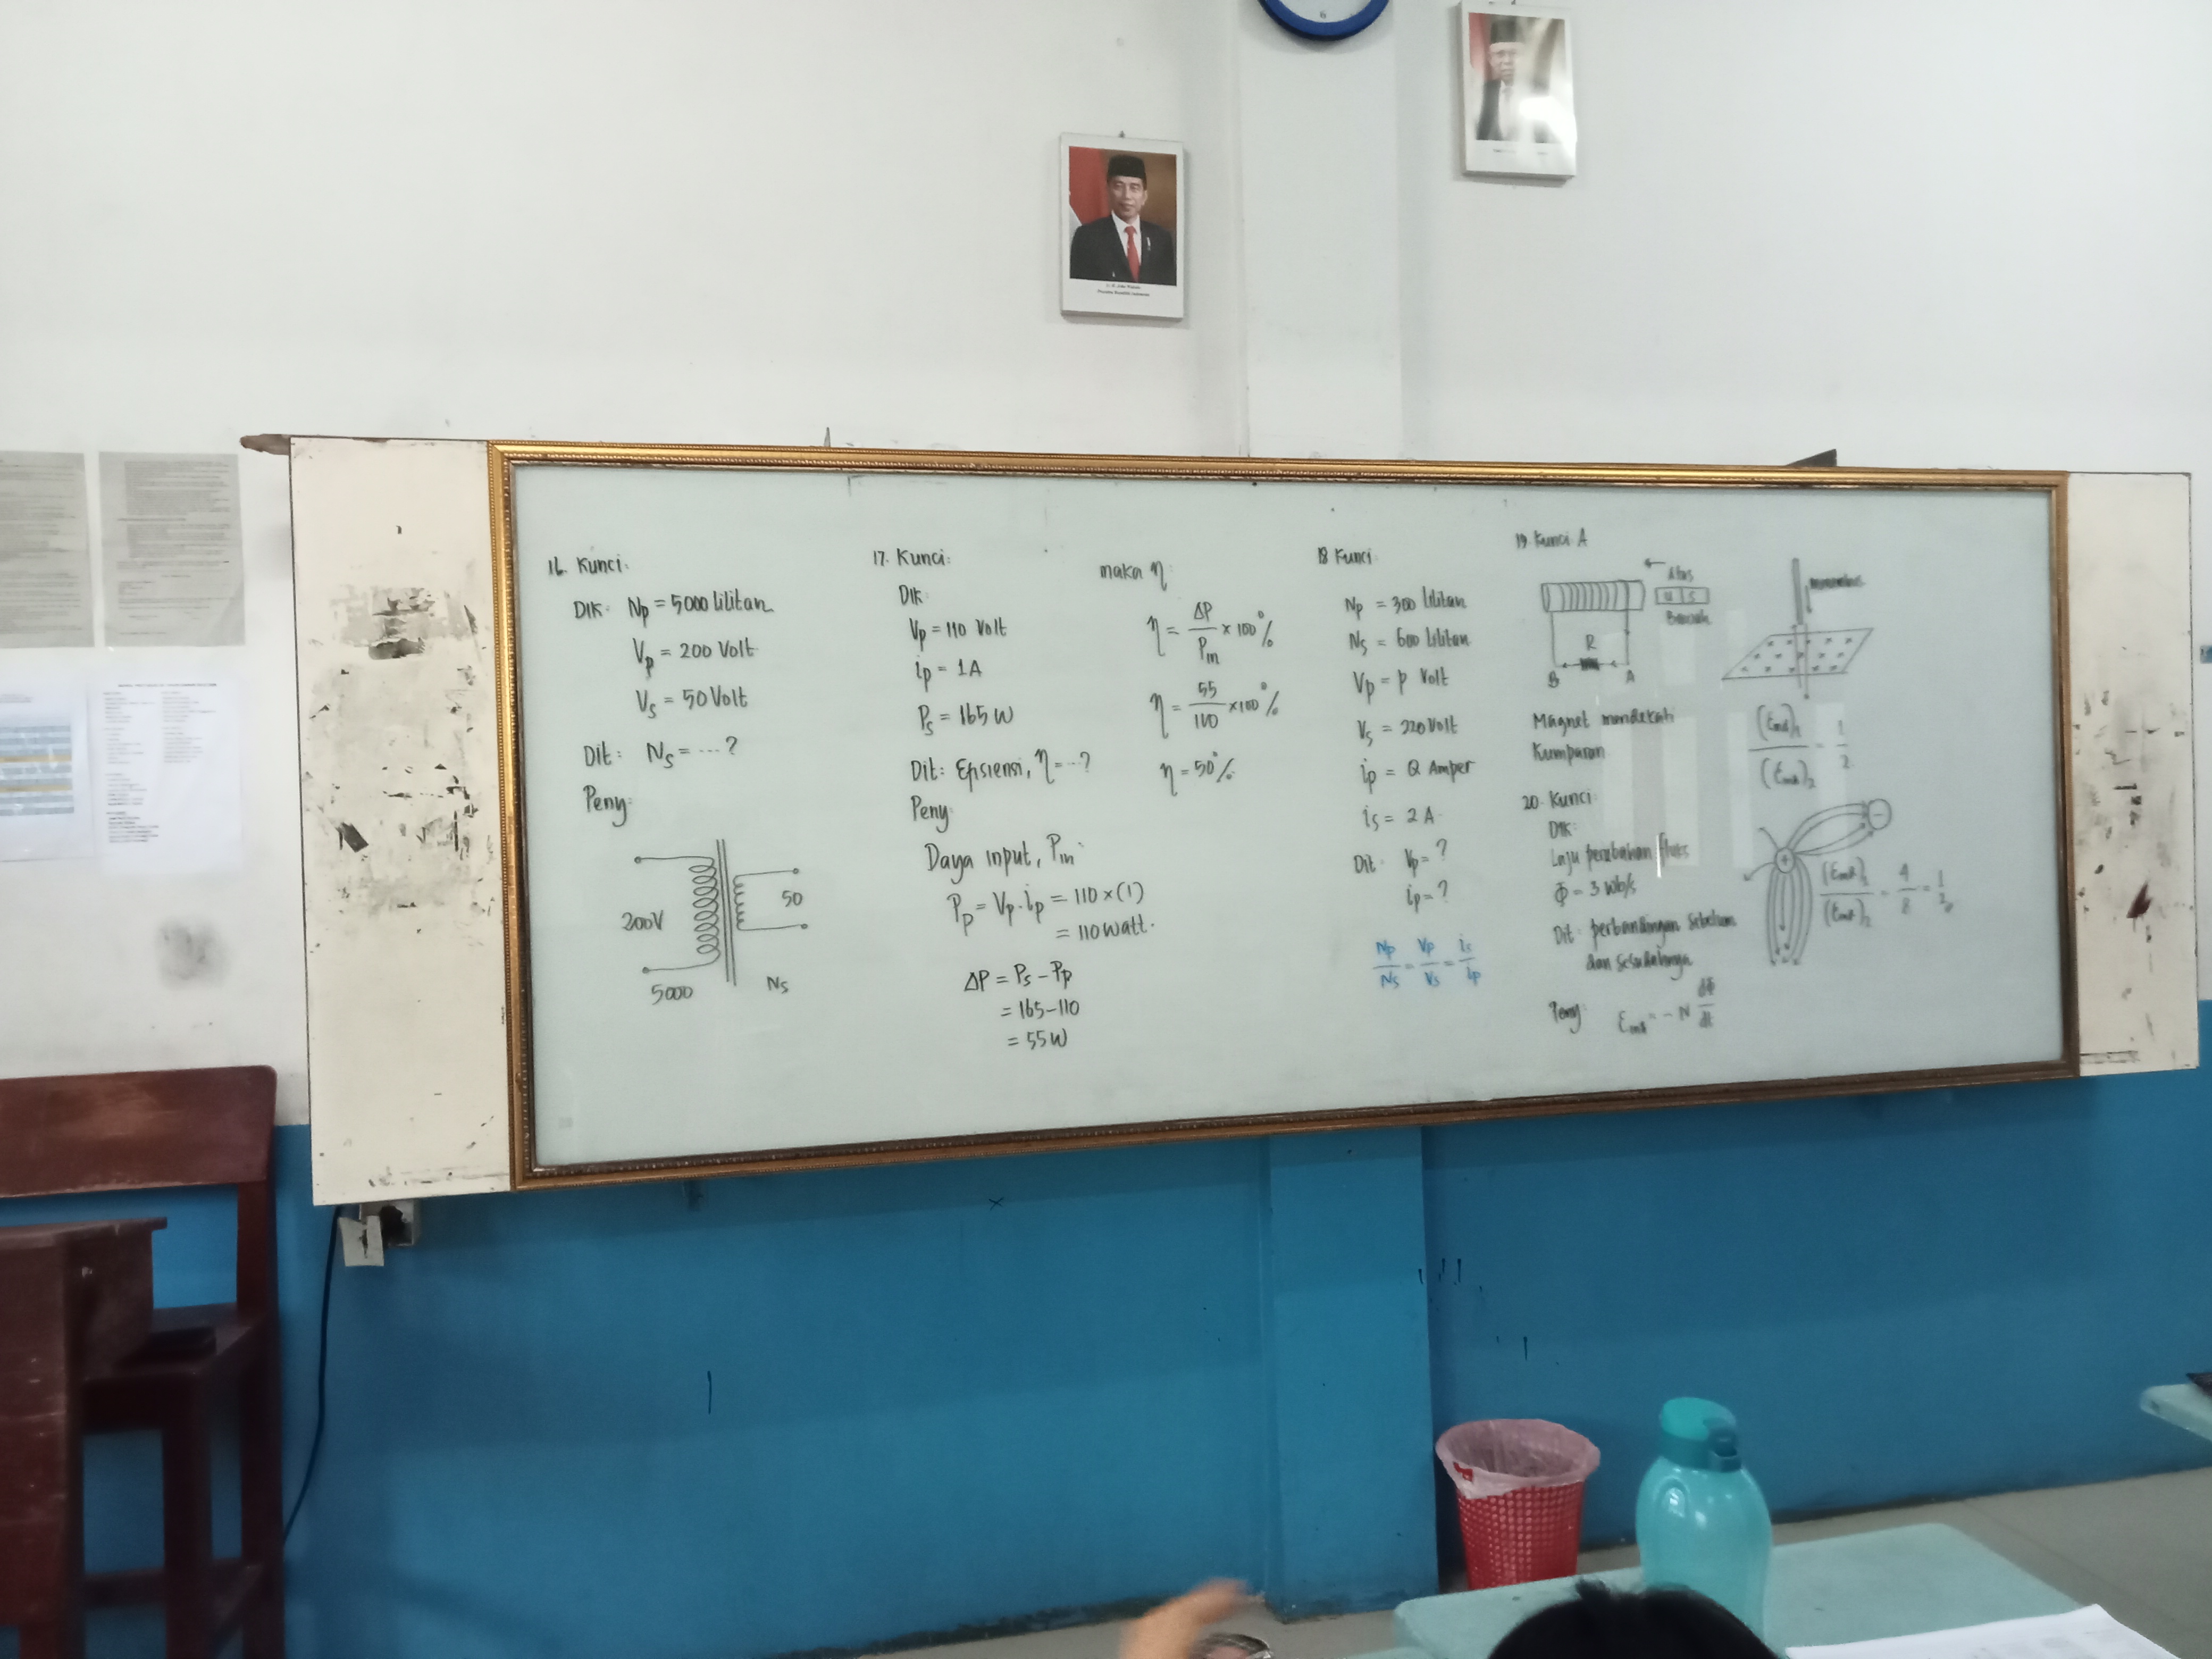 16. Kunci:
Dik: Np = 5000 lilitan
Vp = 200 Volt
Vs = 50 Volt
Dit: Ns = ...?
Peny:
200V
50
5000
Ns
17. Kunci:
Dik:
Vp = 110 Volt
ip = 1A
Ps = 165 W
Dit: Efisiensi, η = ...?
Peny:
Daya input, Pin:
Pp = Vp . ip = 110 × (1)
= 110 watt.
ΔP = Ps - Pp
= 165 - 110
= 55 W
maka η:
η = ΔP / Pin × 100%
η = 55 / 110 × 100%
η = 50%
18 Kunci:
Np = 300 lilitan
Ns = 600 lilitan
Vp = P Volt
Vs = 220 Volt
ip = Q Amper
is = 2 A
Dit: Vp = ?
ip = ?
Np / Ns = Vp / Vs = is / ip
19. Kunci A
Atas
U S
Bawah
R
B A
Magnet mendekati
Kumparan
(Eind)1 / (Eind)2 = 1 / 2
20. Kunci:
Dik:
Laju perubahan fluks
Φ = 3 Wb/s
Dit: perbandingan sebelum
dan sesudahnya
Peny: Eind = - N dΦ / dt
+
-
(Eind)1 / (Eind)2 = 4 / 8 = 1 / 2